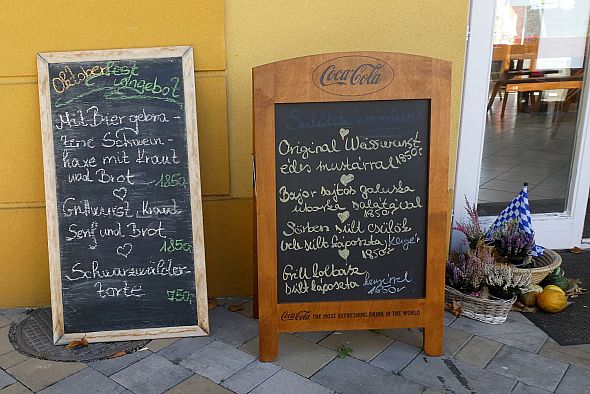 Oktoberfest
Angebot
Mit Bier gebra-
tene Schwein-
haxe mit Kraut
und Brot 1850.-
Grillwurst, Kraut
Senf und Brot
1850.-
Schwarzwälder-
torte 750.-
Coca-Cola
Original Wasswurst
édes mustárral 1850.-
Bajor sajtos galuska
uborka salátával
1850.-
Sörben sült csülök
sült káposzta,
1850.-
Grill kolbász
sült káposzta 1850.-
Coca-Cola THE MOST REFRESHING DRINK IN THE WORLD